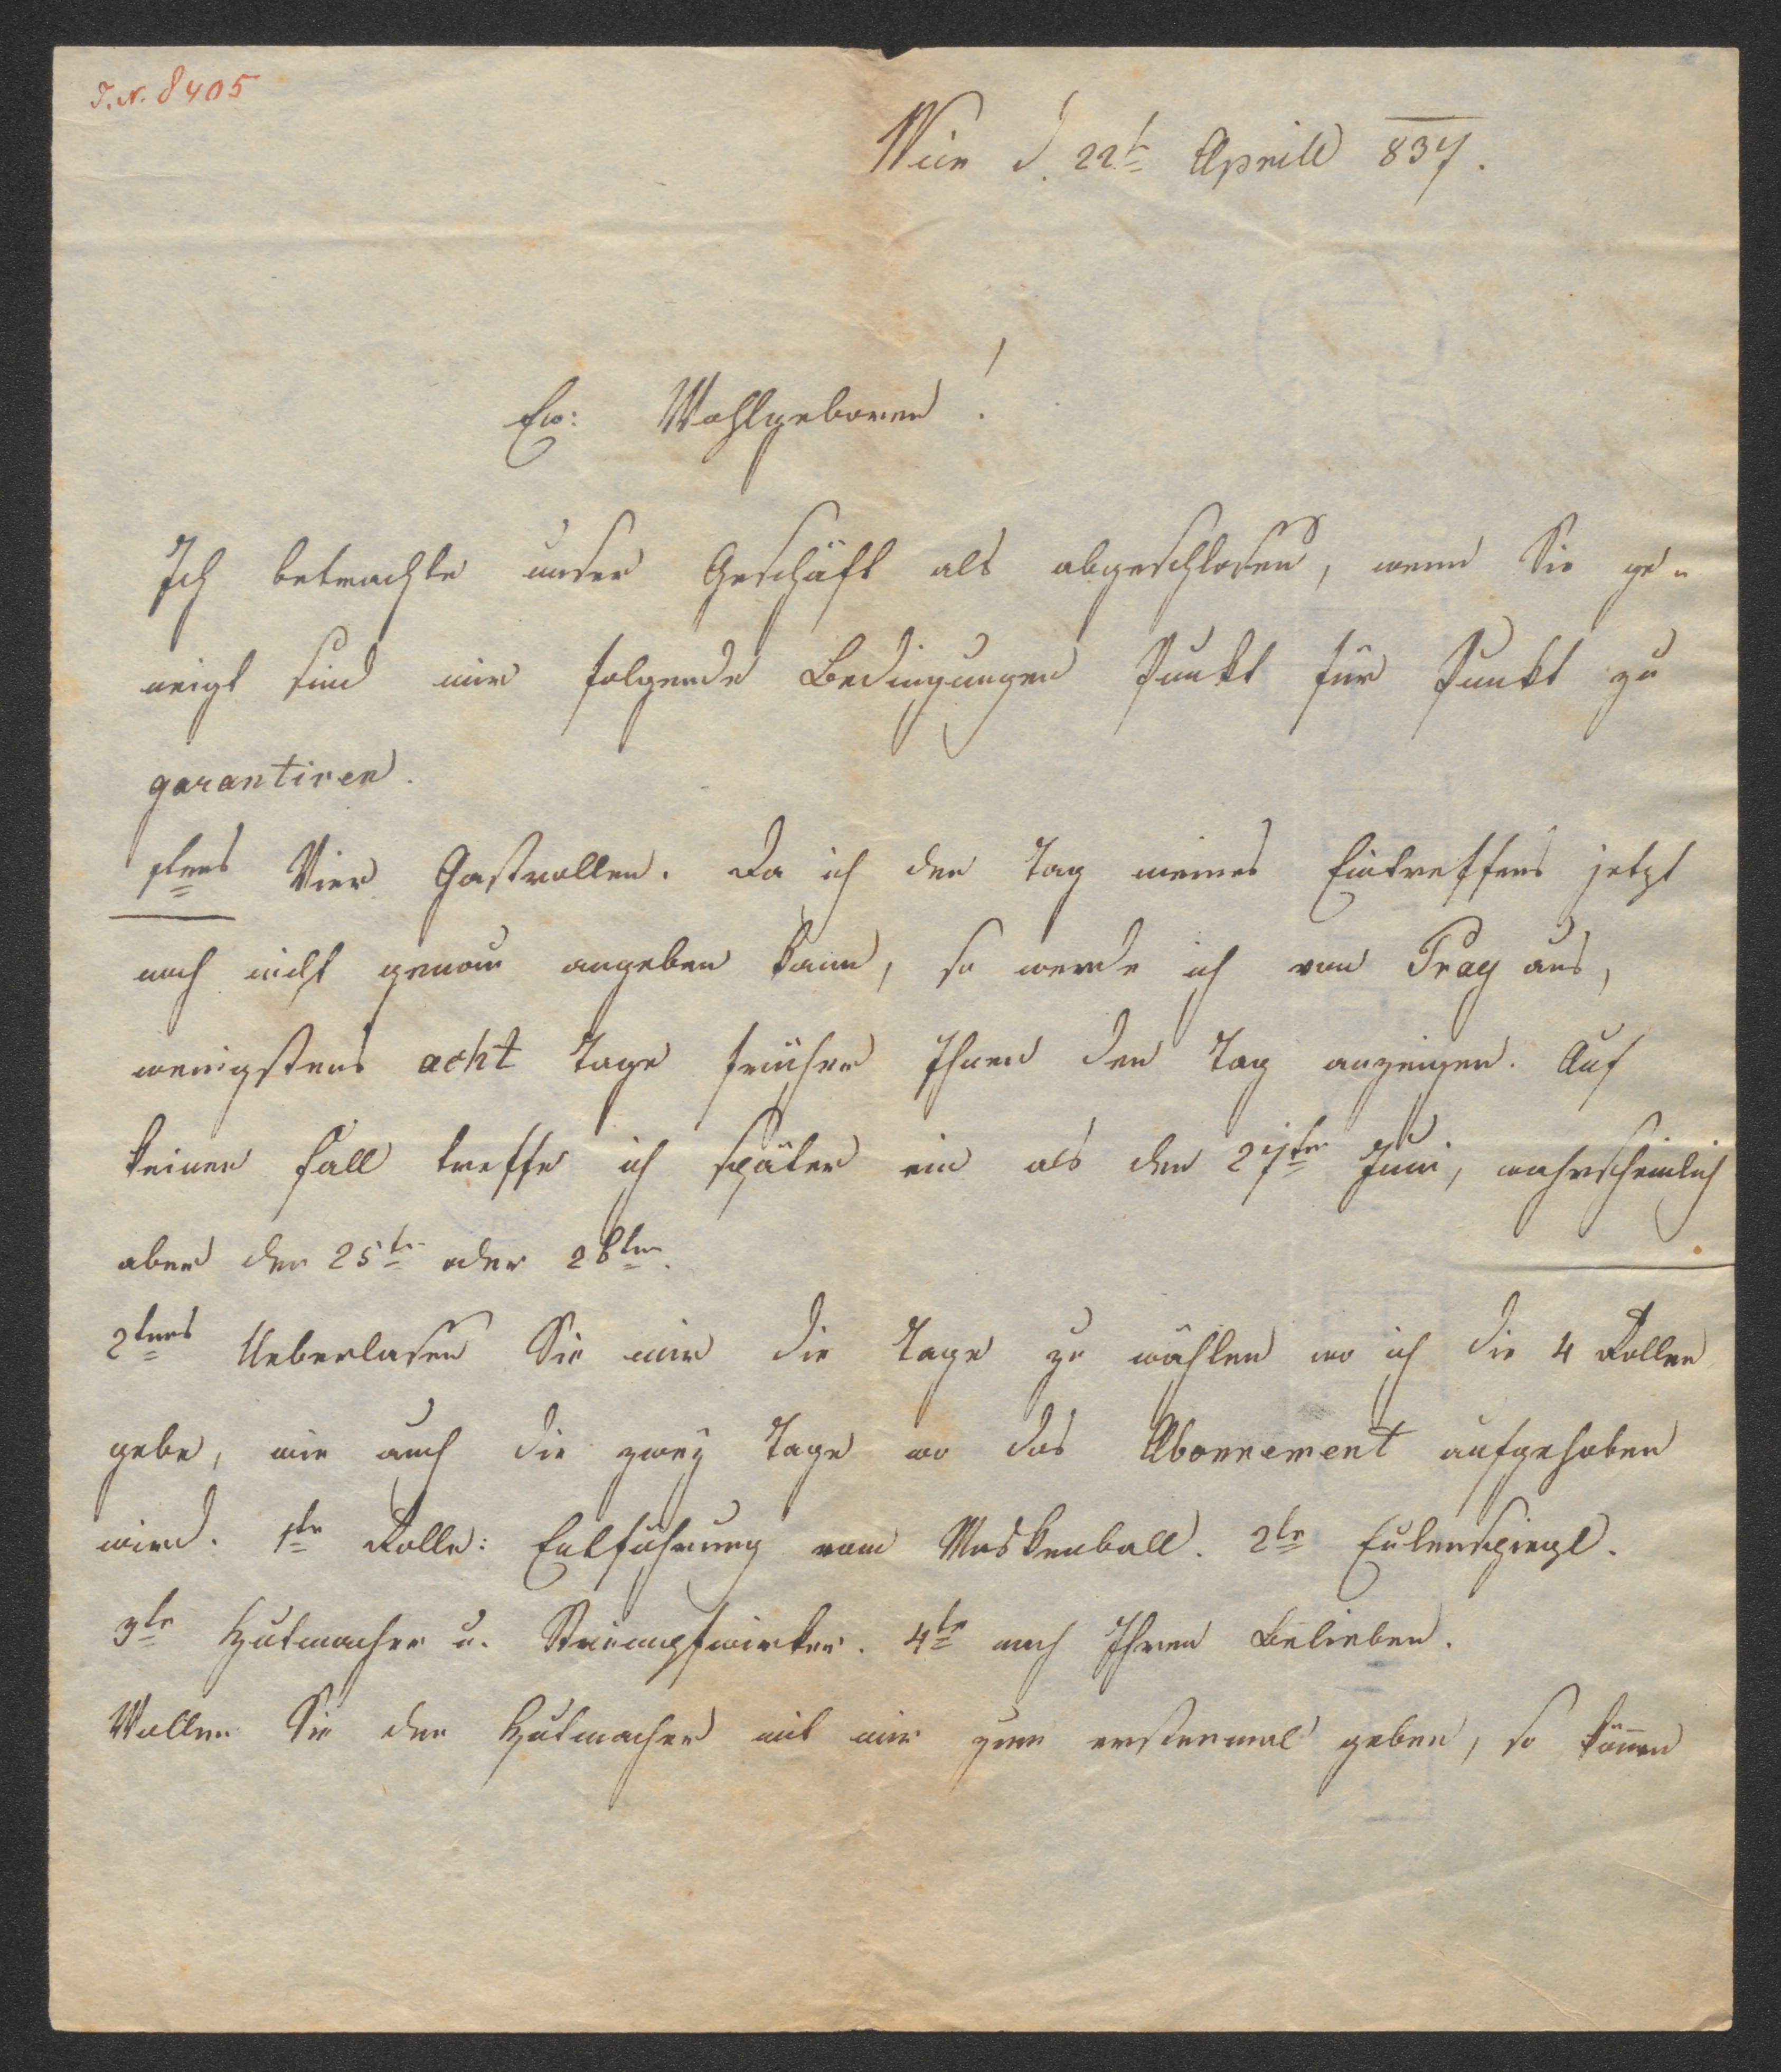 I.N. 8405
Wien d. 22t Aprill 837.
Ew: Wohlgeboren!
Ich betrachte unser Geschäft als abgeschloßen, wenn Sie ge-
neigt sind mir folgende Bedingungen Punkt für Punkt zu
garantiren.
1tens Vier Gastrollen. Da ich den Tag meines Eintreffens jetzt
noch nicht genau angeben kann, so werde ich von Prag aus,
wenigstens acht Tage früher Ihnen den Tag anzeigen. Auf
keinen Fall treffe ich später ein als den 27ten Juni, wahrscheinlich
aber den 25ten oder 26ten.
2tens Ueberlaßen Sie mir die Tage zu wählen wo ich die 4 Rollen
gebe, wie auch die zwey Tage wo das Abonnement aufgehoben
wird. 1te Rolle: Entführung vom Maskenball. 2te Eulenspiegl.
3te Hutmacher u. Strumpfwirker. 4te nach Ihren Belieben.
Wollen Sie den Hutmacher mit mir zum erstenmal geben, so können